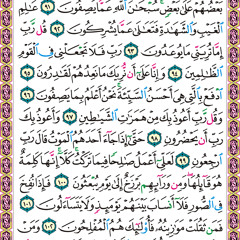 بَعْضُهُمْ عَلَىٰ بَعْضٍ سُبْحَٰنَ ٱللَّهِ عَمَّا يَصِفُونَ ٩١ عَٰلِمِ
ٱلْغَيْبِ وَٱلشَّهَٰدَةِ فَتَعَٰلَىٰ عَمَّا يُشْرِكُونَ ٩٢ قُل رَّبِّ
إِمَّا تُرِيَنِّي مَا يُوعَدُونَ ٩٣ رَبِّ فَلَا تَجْعَلْنِي فِي ٱلْقَوْمِ
ٱلظَّٰلِمِينَ ٩٤ وَإِنَّا عَلَىٰٓ أَن نُّرِيَكَ مَا نَعِدُهُمْ لَقَٰدِرُونَ ٩٥
ٱدْفَعْ بِٱلَّتِي هِيَ أَحْسَنُ ٱلسَّيِّئَةَ نَحْنُ أَعْلَمُ بِمَا يَصِفُونَ ٩٦
وَقُل رَّبِّ أَعُوذُ بِكَ مِنْ هَمَزَٰتِ ٱلشَّيَٰطِينِ ٩٧ وَأَعُوذُ بِكَ
رَبِّ أَن يَحْضُرُونِ ٩٨ حَتَّىٰٓ إِذَا جَآءَ أَحَدَهُمُ ٱلْمَوْتُ قَالَ رَبِّ
ٱرْجِعُونِ ٩٩ لَعَلِّيٓ أَعْمَلُ صَٰلِحًا فِيمَا تَرَكْتُ كَلَّآ إِنَّهَا كَلِمَةٌ
هُوَ قَآئِلُهَا وَمِن وَرَآئِهِم بَرْزَخٌ إِلَىٰ يَوْمِ يُبْعَثُونَ ١٠٠ فَإِذَا نُفِخَ
فِي ٱلصُّورِ فَلَآ أَنسَابَ بَيْنَهُمْ يَوْمَئِذٍ وَلَا يَتَسَآءَلُونَ ١٠١
فَمَن ثَقُلَتْ مَوَٰزِينُهُۥ فَأُو۟لَٰٓئِكَ هُمُ ٱلْمُفْلِحُونَ ١٠٢ وَمَنْ